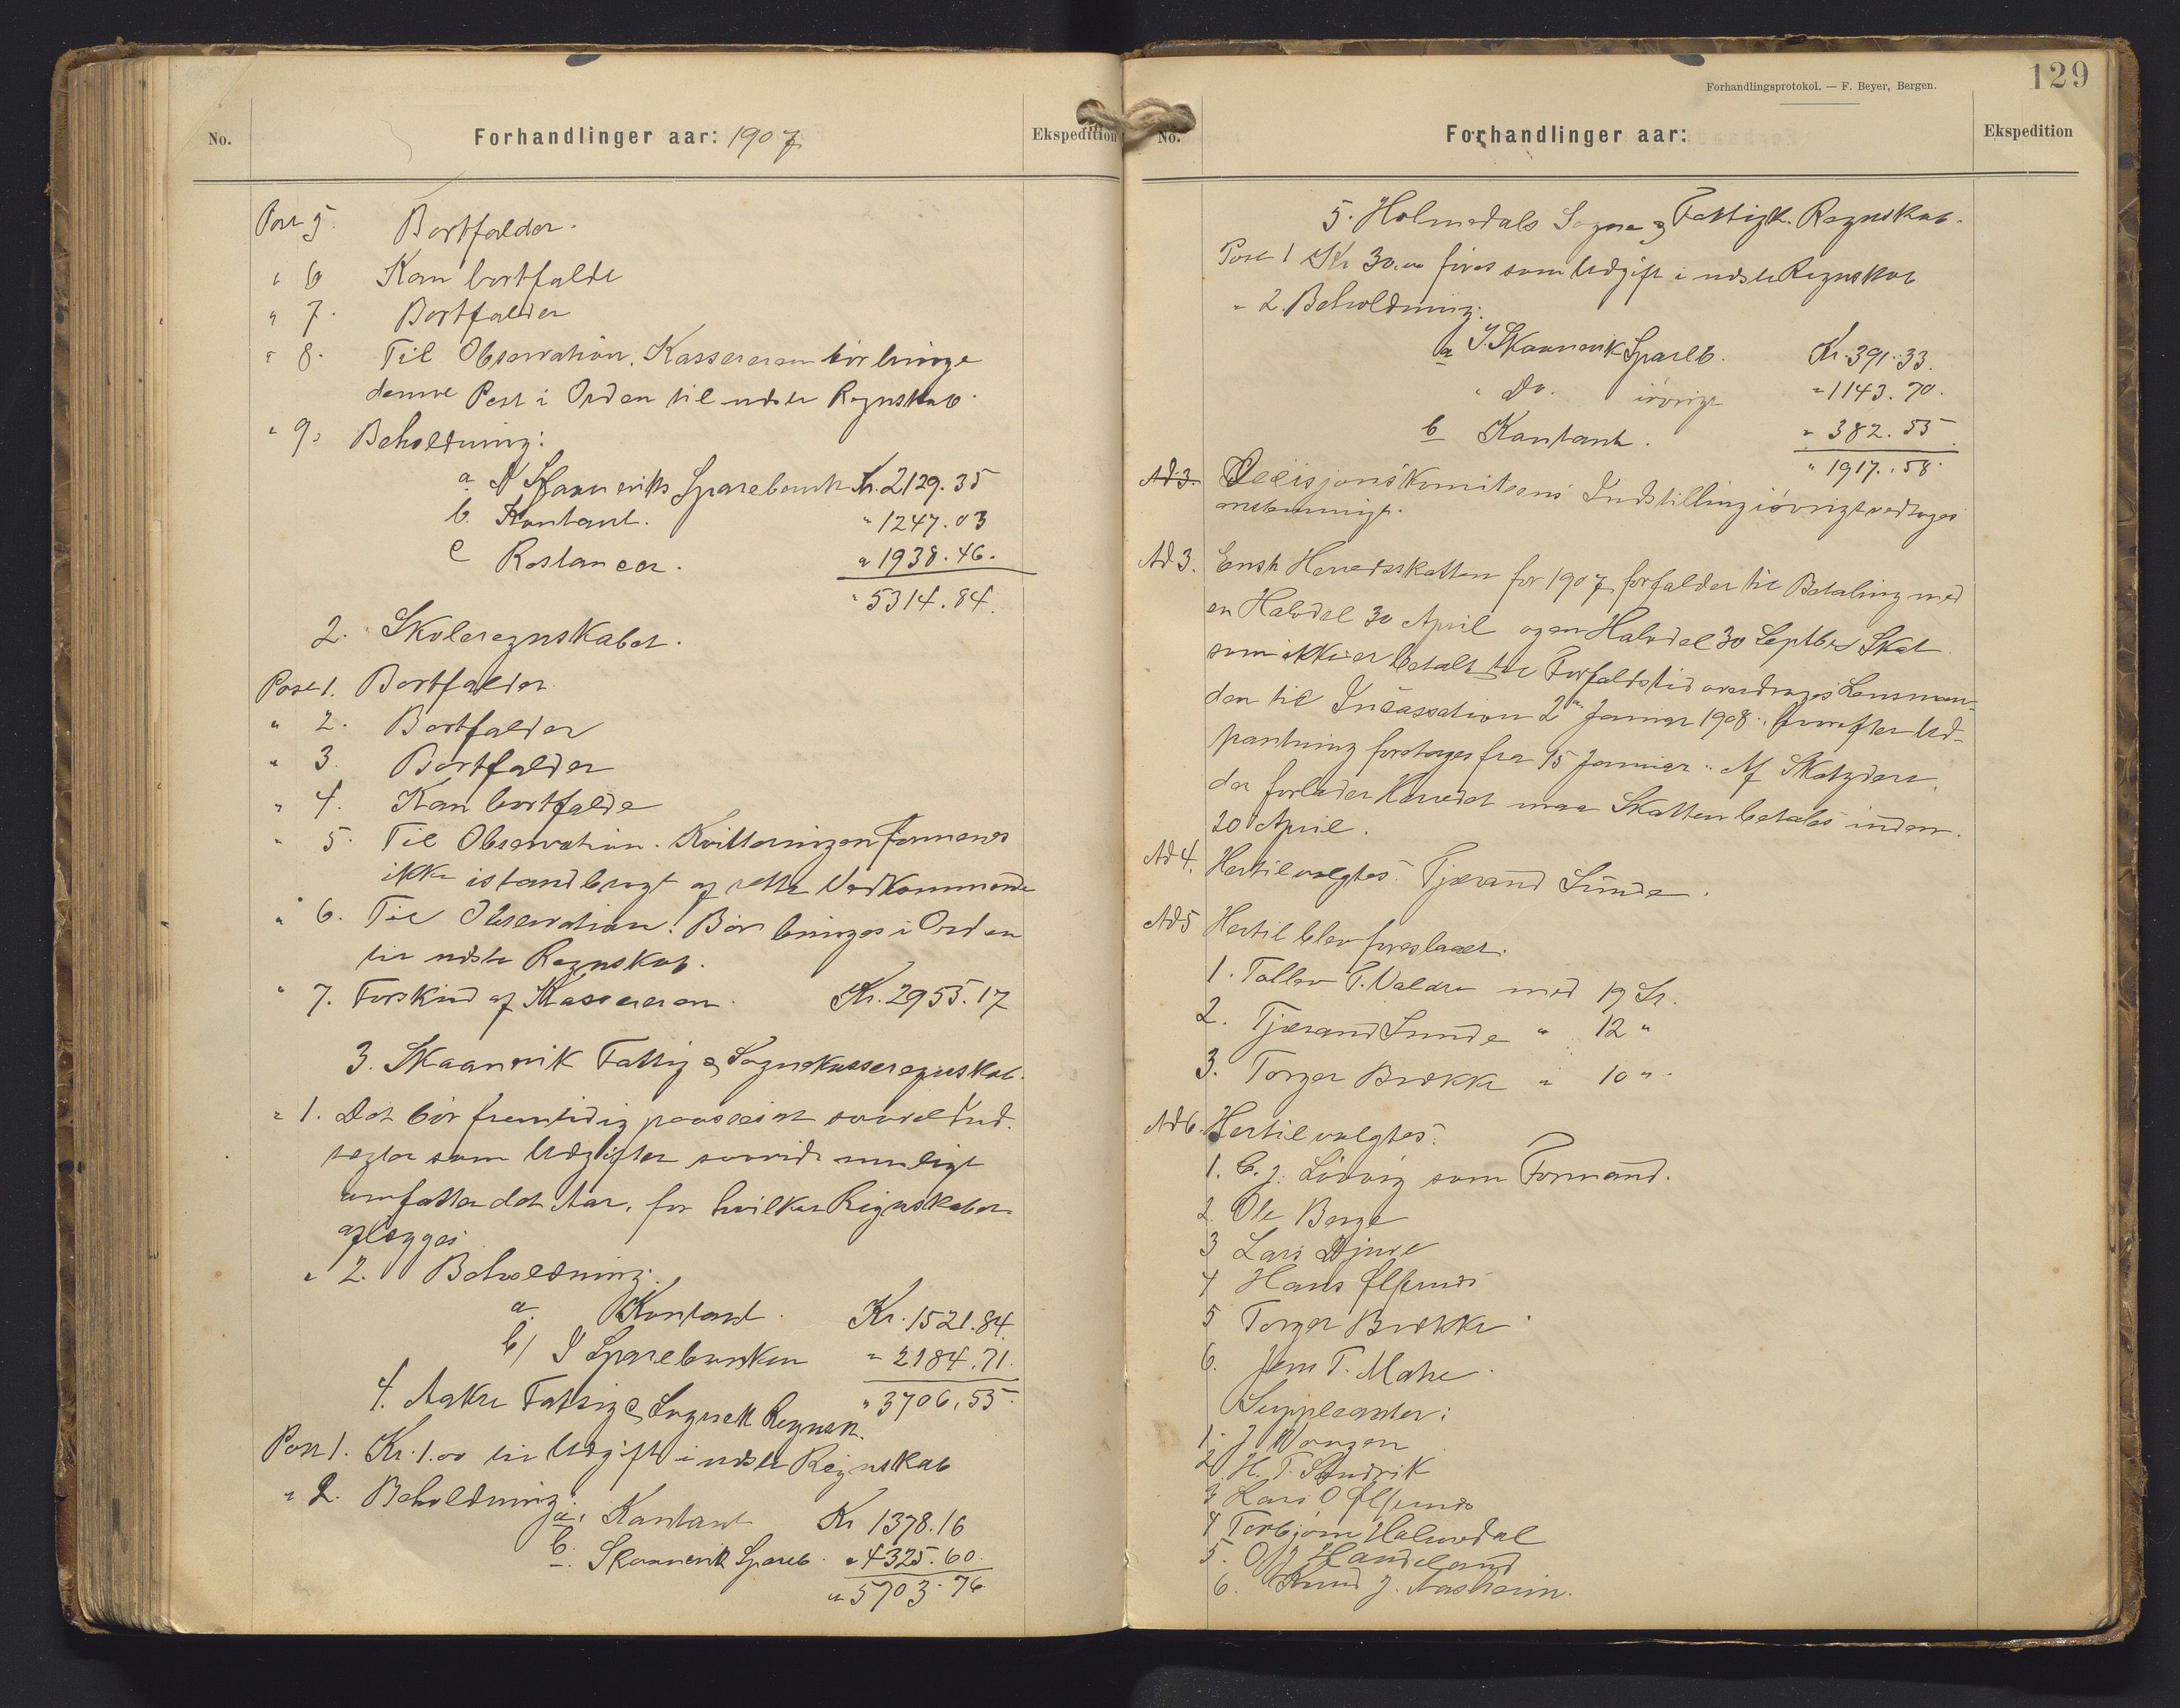 No.
Forhandlinger aar: 1907
Ekspedition
Post 5. Bortfalder.
" 6 Kan bortfalde
" 7. Bortfalder
" 8. Til Observation. Kassereren bør bringe
denne Post i Orden til næste Regnskab.
" 9. Beholdning:
a I Skaaneviks Sparebank Kr. 2129.35
b. Kontant. " 1247.03
c Restancer. " 1938.46.
" 5314.84.
2. Skoleregnskabet.
Post 1. Bortfalder.
" 2. Bortfalder
" 3. Bortfalder
" 4. Kan bortfalde
" 5. Til Observation. Kvitteringen formenes
ikke istandbragt af rette Vedkommende
" 6. Til Observation. Bør bringes i Orden
til næste Regnskab.
" 7. Forskud af Kassereren. Kr. 2955.17
3. Skaanevik Fattig & Sognekasseregnskab.
" 1. Det bør fremtidig paasees at saavel Ind-
tægter som Udgifter saavidt muligt
omfatter det Aar, for hvilket Regnskabet
aflægges
" 2. Beholdning:
a Kontant. Kr. 1521.84.
b) I Sparebanken " 2184.71.
" 3706.55.
4. Aakre Fattig & Sognek Regnsk.
Post 1. Kr. 1.00 til Udgift i næste Regnskab
" 2. Beholdning:
a. Kontant Kr 1378.16
b. Skaanevik Spareb. " 4325.60.
" 5703.76
Forhandlingsprotokol. — F. Beyer, Bergen.
129
No.
Forhandlinger aar:
Ekspedition
5. Holmedals Sogne & Fattigk. Regnskab.
Post 1 Kr 30.00 føres som Udgift i næste Regnskab
" 2. Beholdning:
a I Skaanevik Spareb. Kr. 391.33.
" Do. iøvrigt " 1143.70.
b Kontant. " 382.55.
" 1917.58.
Ad 3. Decisjonskomiteens Indstilling iøvrigt vedtages
enstemmigt.
Ad 3. Ensk Herredsskatten for 1907 forfalder til Betaling med
en Halvdel 30 April og en Halvdel 30 Septbr Skat
som ikke er betalt til Forfaldstid overdrages Lensman-
den til Incassation 2den Januar 1908, hvorefter Ud-
pantning foretages fra 15 Januar. Af Skatydere,
der forlader Herredet maa Skatten betales inden
20 April.
Ad 4. Hertil valgtes: Tjerand Sunde.
Ad 5 Hertil blev foreslaaet:
1. Tollev T. Valdre med 19 St.
2. Tjerand Sunde " 12 "
3. Torger Brekke " 10 "
Ad 6. Hertil valgtes:
1. C. J. Løvvig som Formand.
2. Ole Berge
3 Lars Djuve
4 Hans Ølfernes
5 Torger Brekke
6. Jens T. Matre
Suppleanter:
1. J Vangen
2. H. T. Sandvik
3 Lars O Ølfernes
4 Torbjørn Holmedal
5. O. J Handeland
6. Knud J. Aasheim.